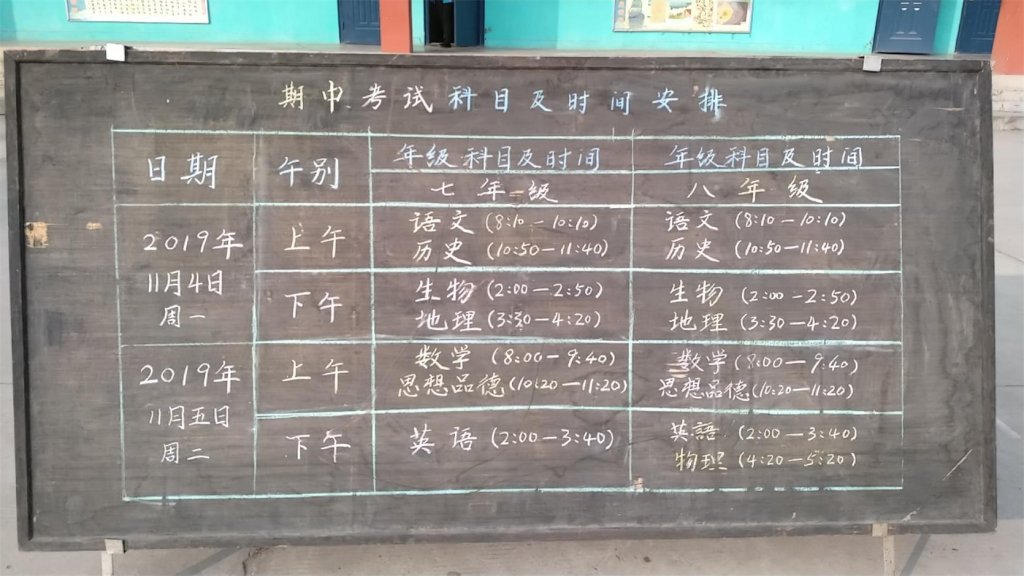 期中考试科目及时间安排
日期 午别 年级科目及时间 年级科目及时间
七年级 八年级
2019年11月4日周一 上午 语文(8:10—10:10) 语文(8:10—10:10)
历史(10:50—11:40) 历史(10:50—11:40)
下午 生物(2:00—2:50) 生物(2:00—2:50)
地理(3:30—4:20) 地理(3:30—4:20)
2019年11月五日周二 上午 数学(8:00—9:40) 数学(8:00—9:40)
思想品德(10:20—11:20) 思想品德(10:20—11:20)
下午 英语(2:00—3:40) 英語(2:00—3:40)
物理(4:20—5:20)